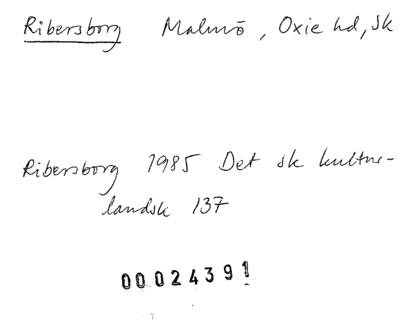 Ribersborg Malmö, Oxie hd, Sk
Ribersborg 1985 Det sk kultur-
landsk 137
00024391